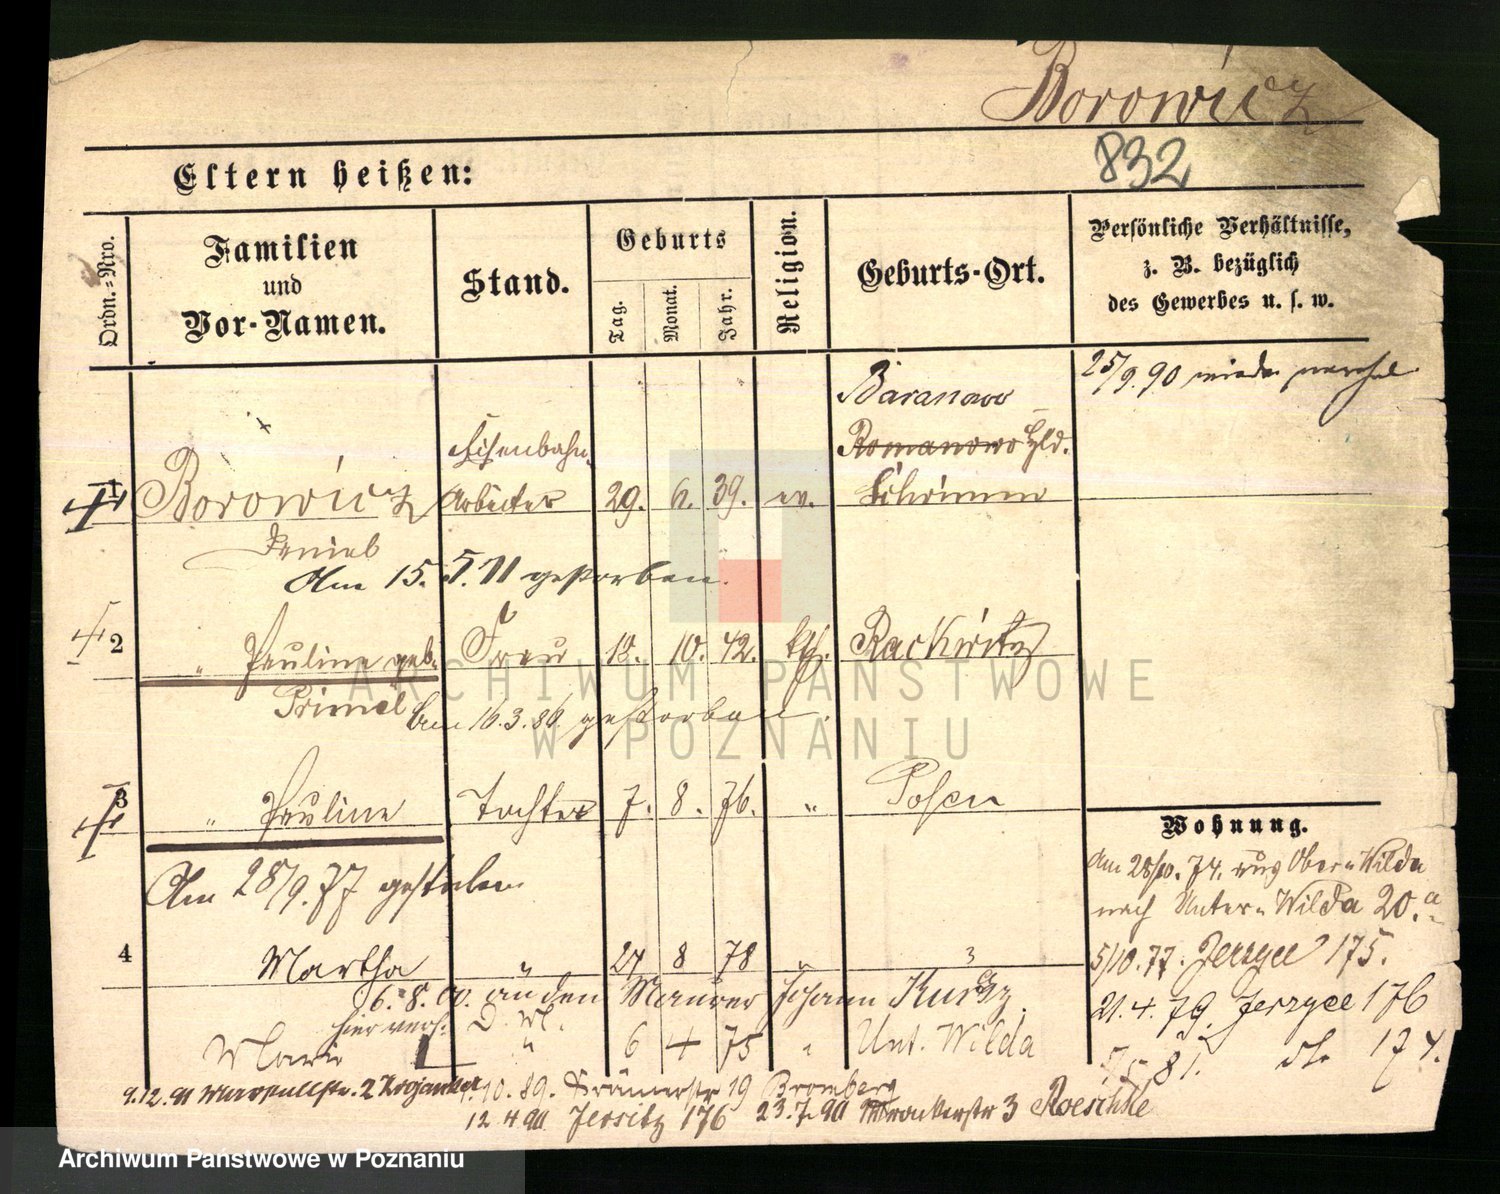 Borowicz
832
Eltern heißen:
Ordn.-Nro.
Familien
und
Vor-Namen.
Stand.
Geburts
Tag. Monat. Jahr.
Religion.
Geburts-Ort.
Persönliche Verhältnisse,
z. B. bezüglich
des Gewerbes u. s. w.
25/9. 90
Baranowo
Eisenbahn- Romanowo Hld.
1 Borowicz Arbeiter 29. 6. 39. ev. Schrimm
Am 15. 5. 11 gestorben.
2 " Pauline geb. Frau 10. 42. kth. Rackwitz
Primel Am 16.3.86 gestorben.
3 " Pauline Tochter 7. 8. 76. " Posen
Am 28/9. 77 gestorben
4 Martha " 27 8 78 "
6. 8. 00. an den Maurer Johann
hier verh. D. M.
Marie " 6 4 75 " Unt. Wilda
Wohnung.
Am 28/10. 74. aus Ober-Wilda
nach Unter-Wilda 20.a
5/10. 77. Jerzyce 175.
21. 4. 79. Jerzyce 176
81. do 174.
9.12.91 2
10. 89. 19 Bromberg
12 4 90 Jersitz 176 23.7.90 3 Roeschke
ARCHIWUM PAŃSTWOWE
W POZNANIU
Archiwum Państwowe w Poznaniu